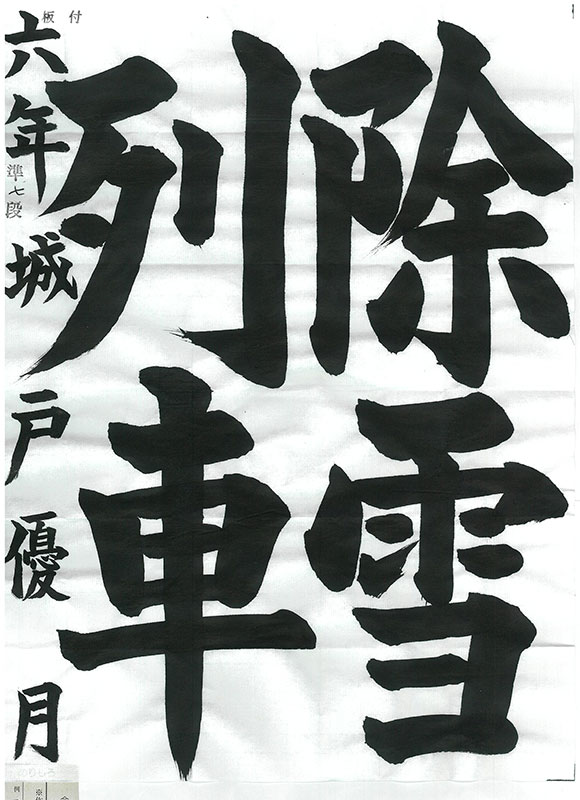 除雪
列車
六年 城戸優月
準七段
付板